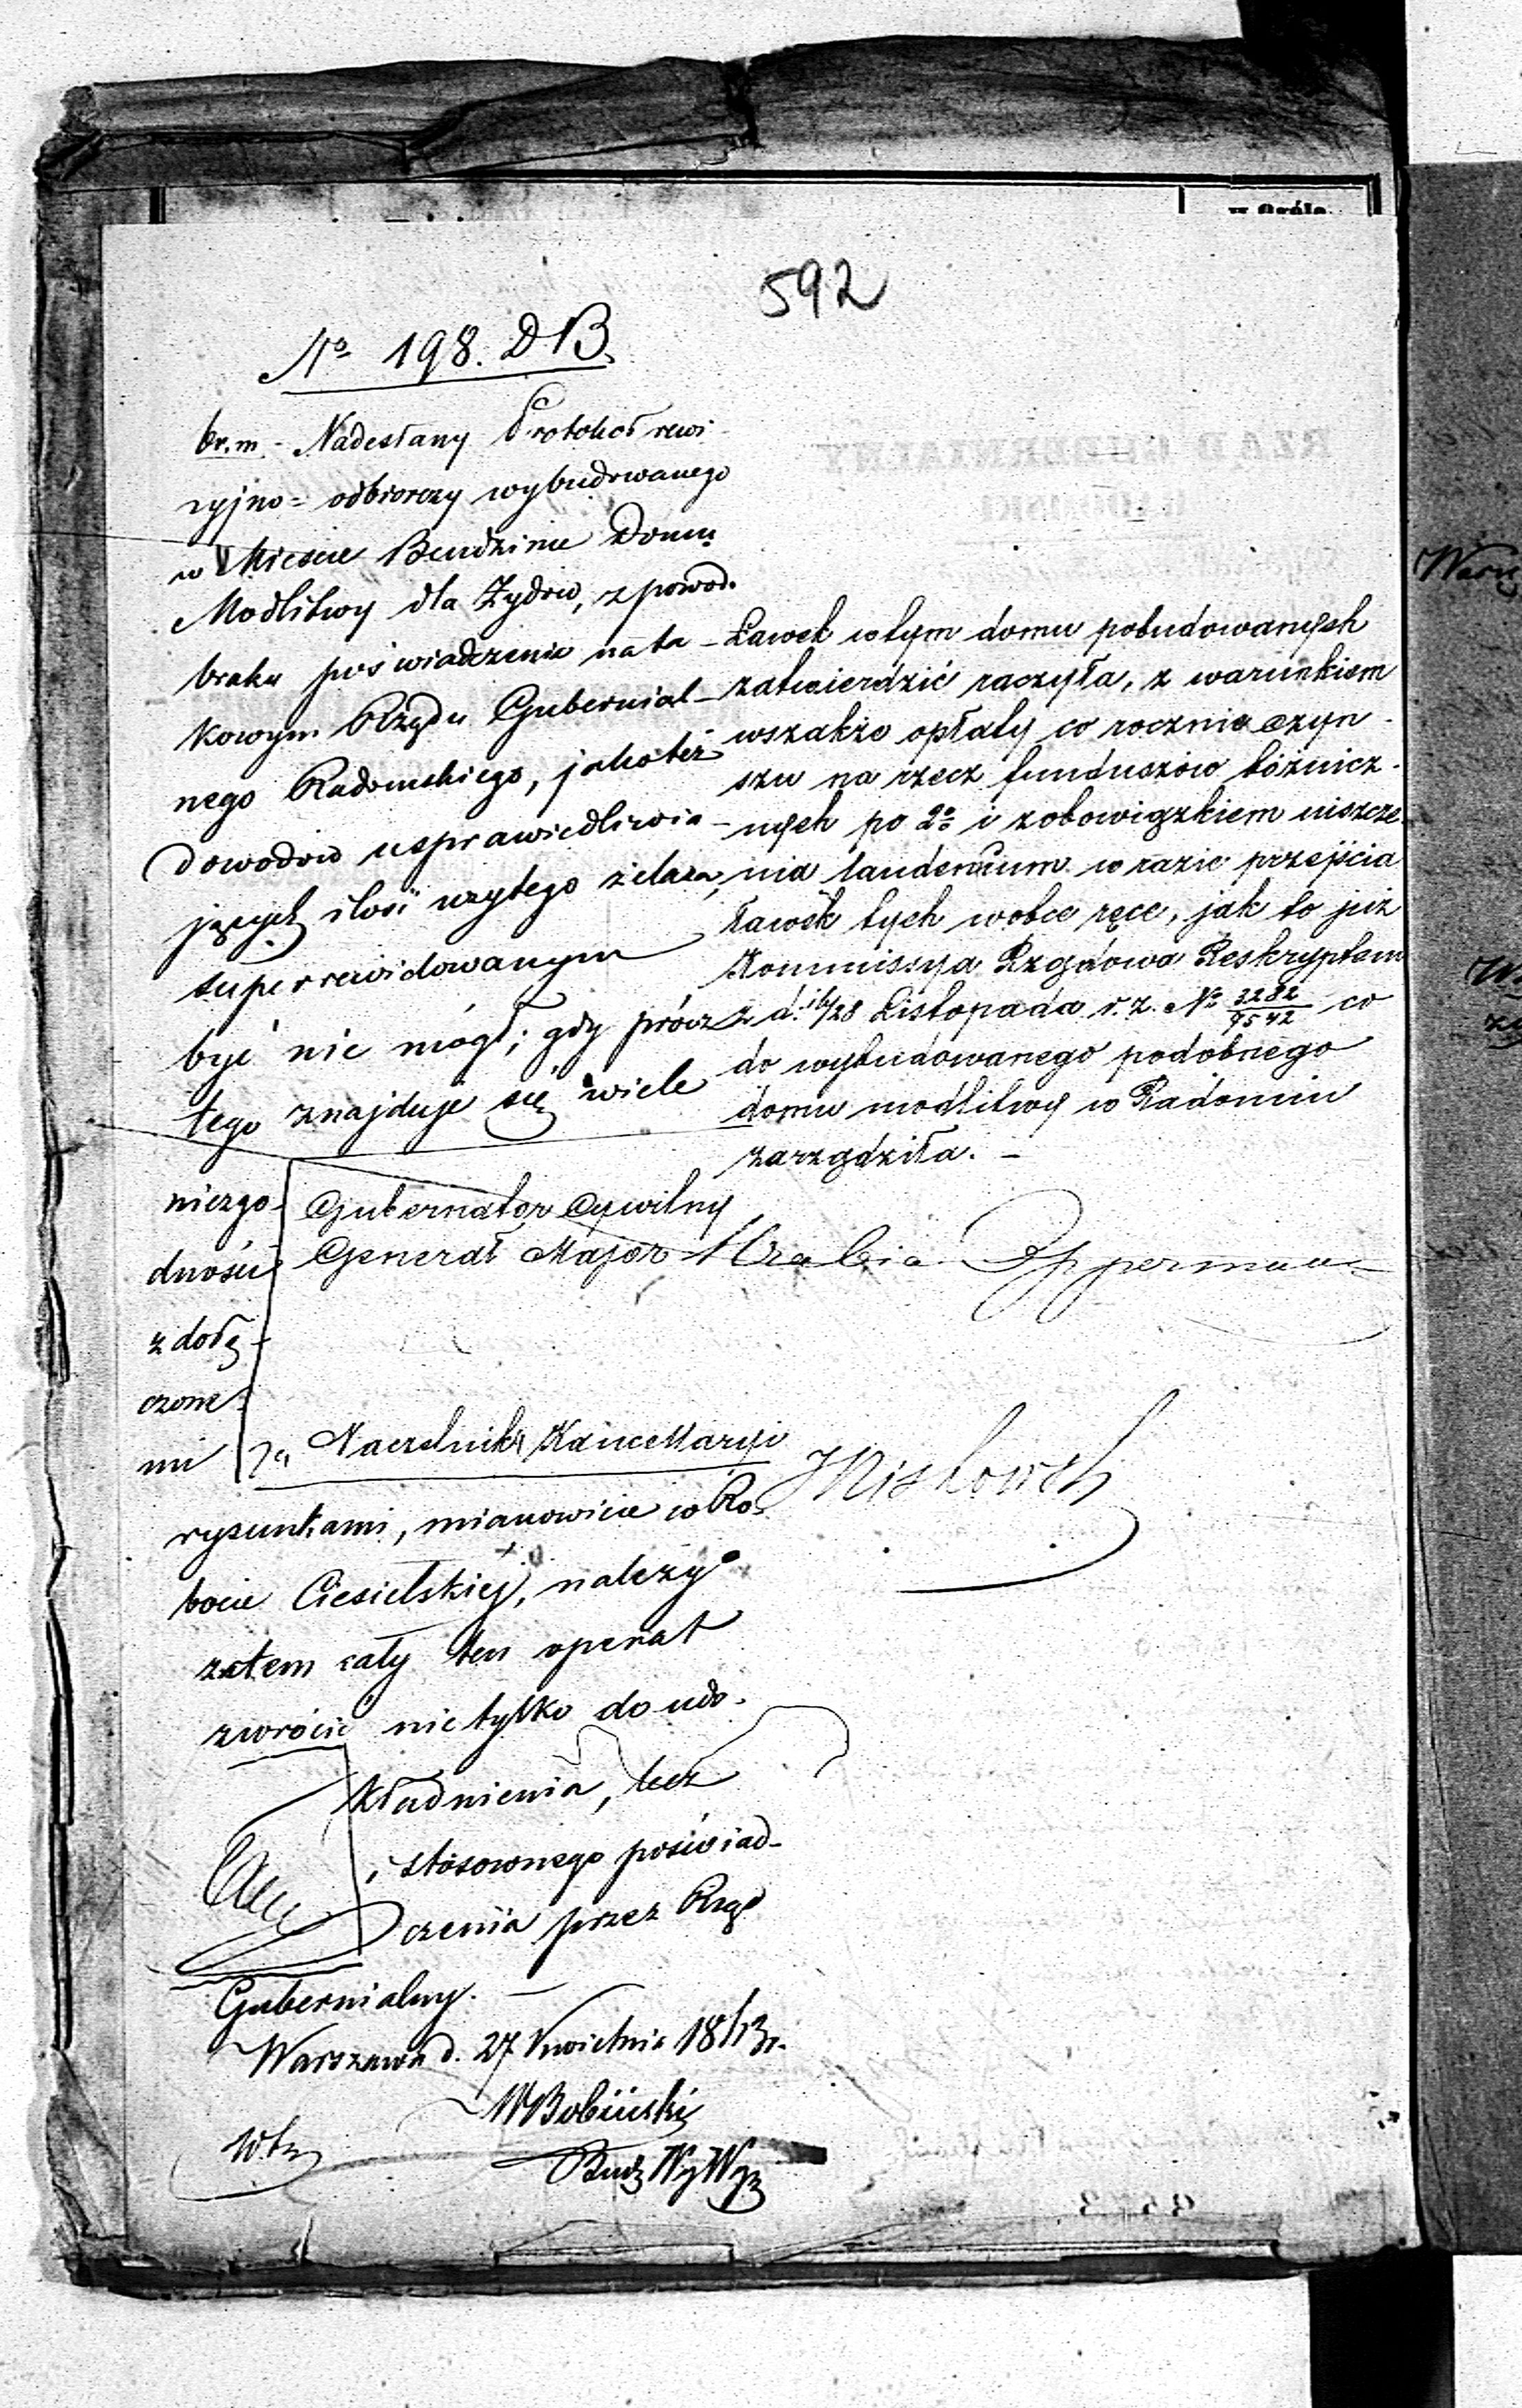 592
No 198. DB.
br. m. - Nadesłany Protokoł rewi-
zyjno=odbiorczy wybudowanego
w Mieście Bendzinie Domu
Modlitwy dla Żydów, z powod.
braku poświadczenia na ta-
kowym Rządu Gubernial-
nego Radomskiego, jakoteż
dowodów usprawiedliwia-
jących ilość użytego żelaza,
superrewidowanym
być nie mógł; gdy prócz
tego znajduje się wiele
niezgo-
dności
z dołą-
czone-
mi
rysunkami, mianowicie w Ro-
bocie Ciesielskiej, należy
zatem cały ten operat
zwrócić nietylko do udo-
kładnienia, lecz
i stósownego poświad-
czenia przez Rząd
Gubernialny. -
Warszawa d. 27 Kwietnia 18
WBobiński
Bud WyWyz
Ławek w tym domu pobudowanych
zatwierdzić raczyła, z warunkiem
wszakże opłaty co rocznie czyn-
szu na rzecz funduszów bóżnicz-
nych po 2% i zobowiązkiem uiszcze-
nia laudemium w razie przejścia
ławek tych w obce ręce, jak to już
Kommissya Rządowa Reskryptem
z d. 16/28 Listopada r. z. No 3282/9542 co
do wybudowanego podobnego
domu modlitwy w Radomiu
zarządziła. -
Gubernator Cywilny
Generał Major Hrabia Opperman
Za Naczelnika Kancellaryi
w Ogóle.